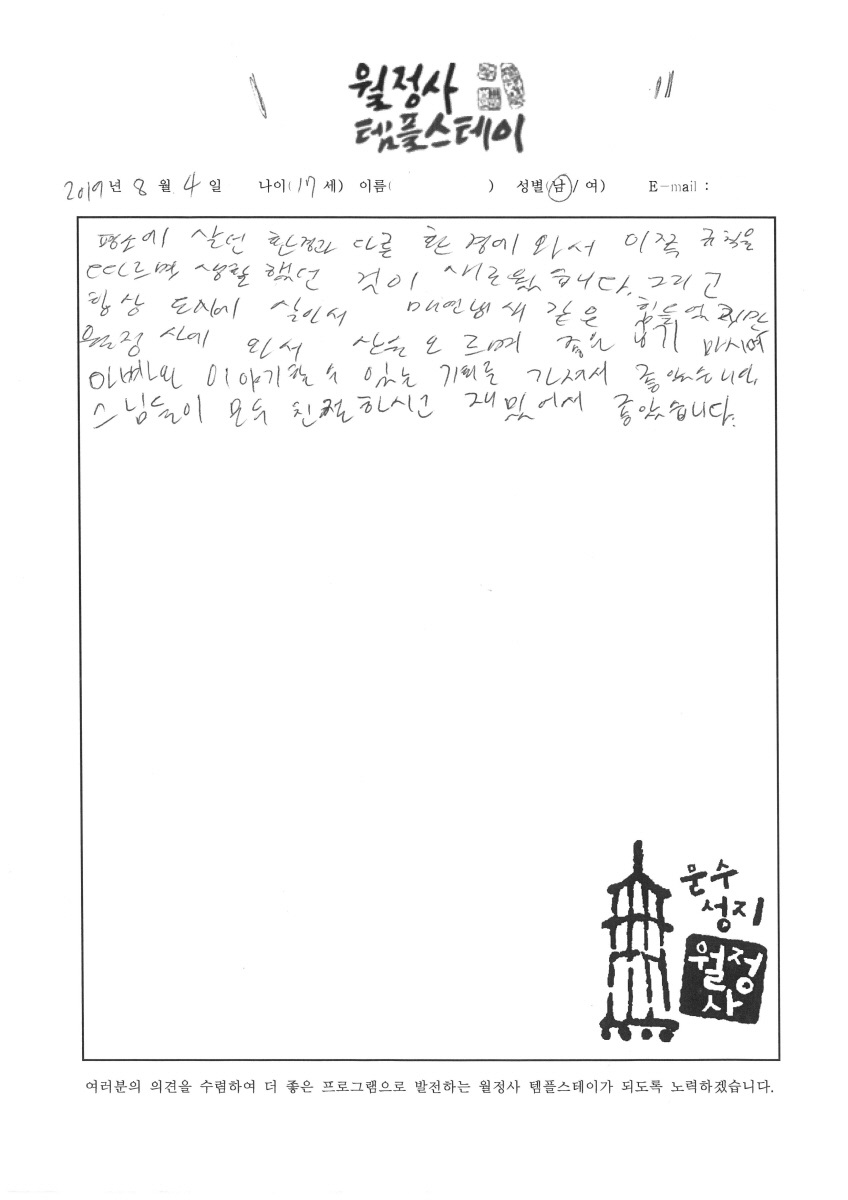 월정사
템플스테이
2019년 8월 4일 나이(17세) 이름( ) 성별(남/여) E-mail :
평소에 살던 환경과 다른 환경에 와서 이쪽 규칙을
따르며 생활했던 것이 새로웠습니다. 그리고
항상 도시에 살아서 매연냄새 같은 힘들었지만
월정사에 와서 산을 오르며 좋은 공기 마시며
아빠와 이야기할 수 있는 기회를 가져서 좋았습니다.
스님들이 모두 친절하시고 재밌어서 좋았습니다.
문수
성지
월정
사
여러분의 의견을 수렴하여 더 좋은 프로그램으로 발전하는 월정사 템플스테이가 되도록 노력하겠습니다.